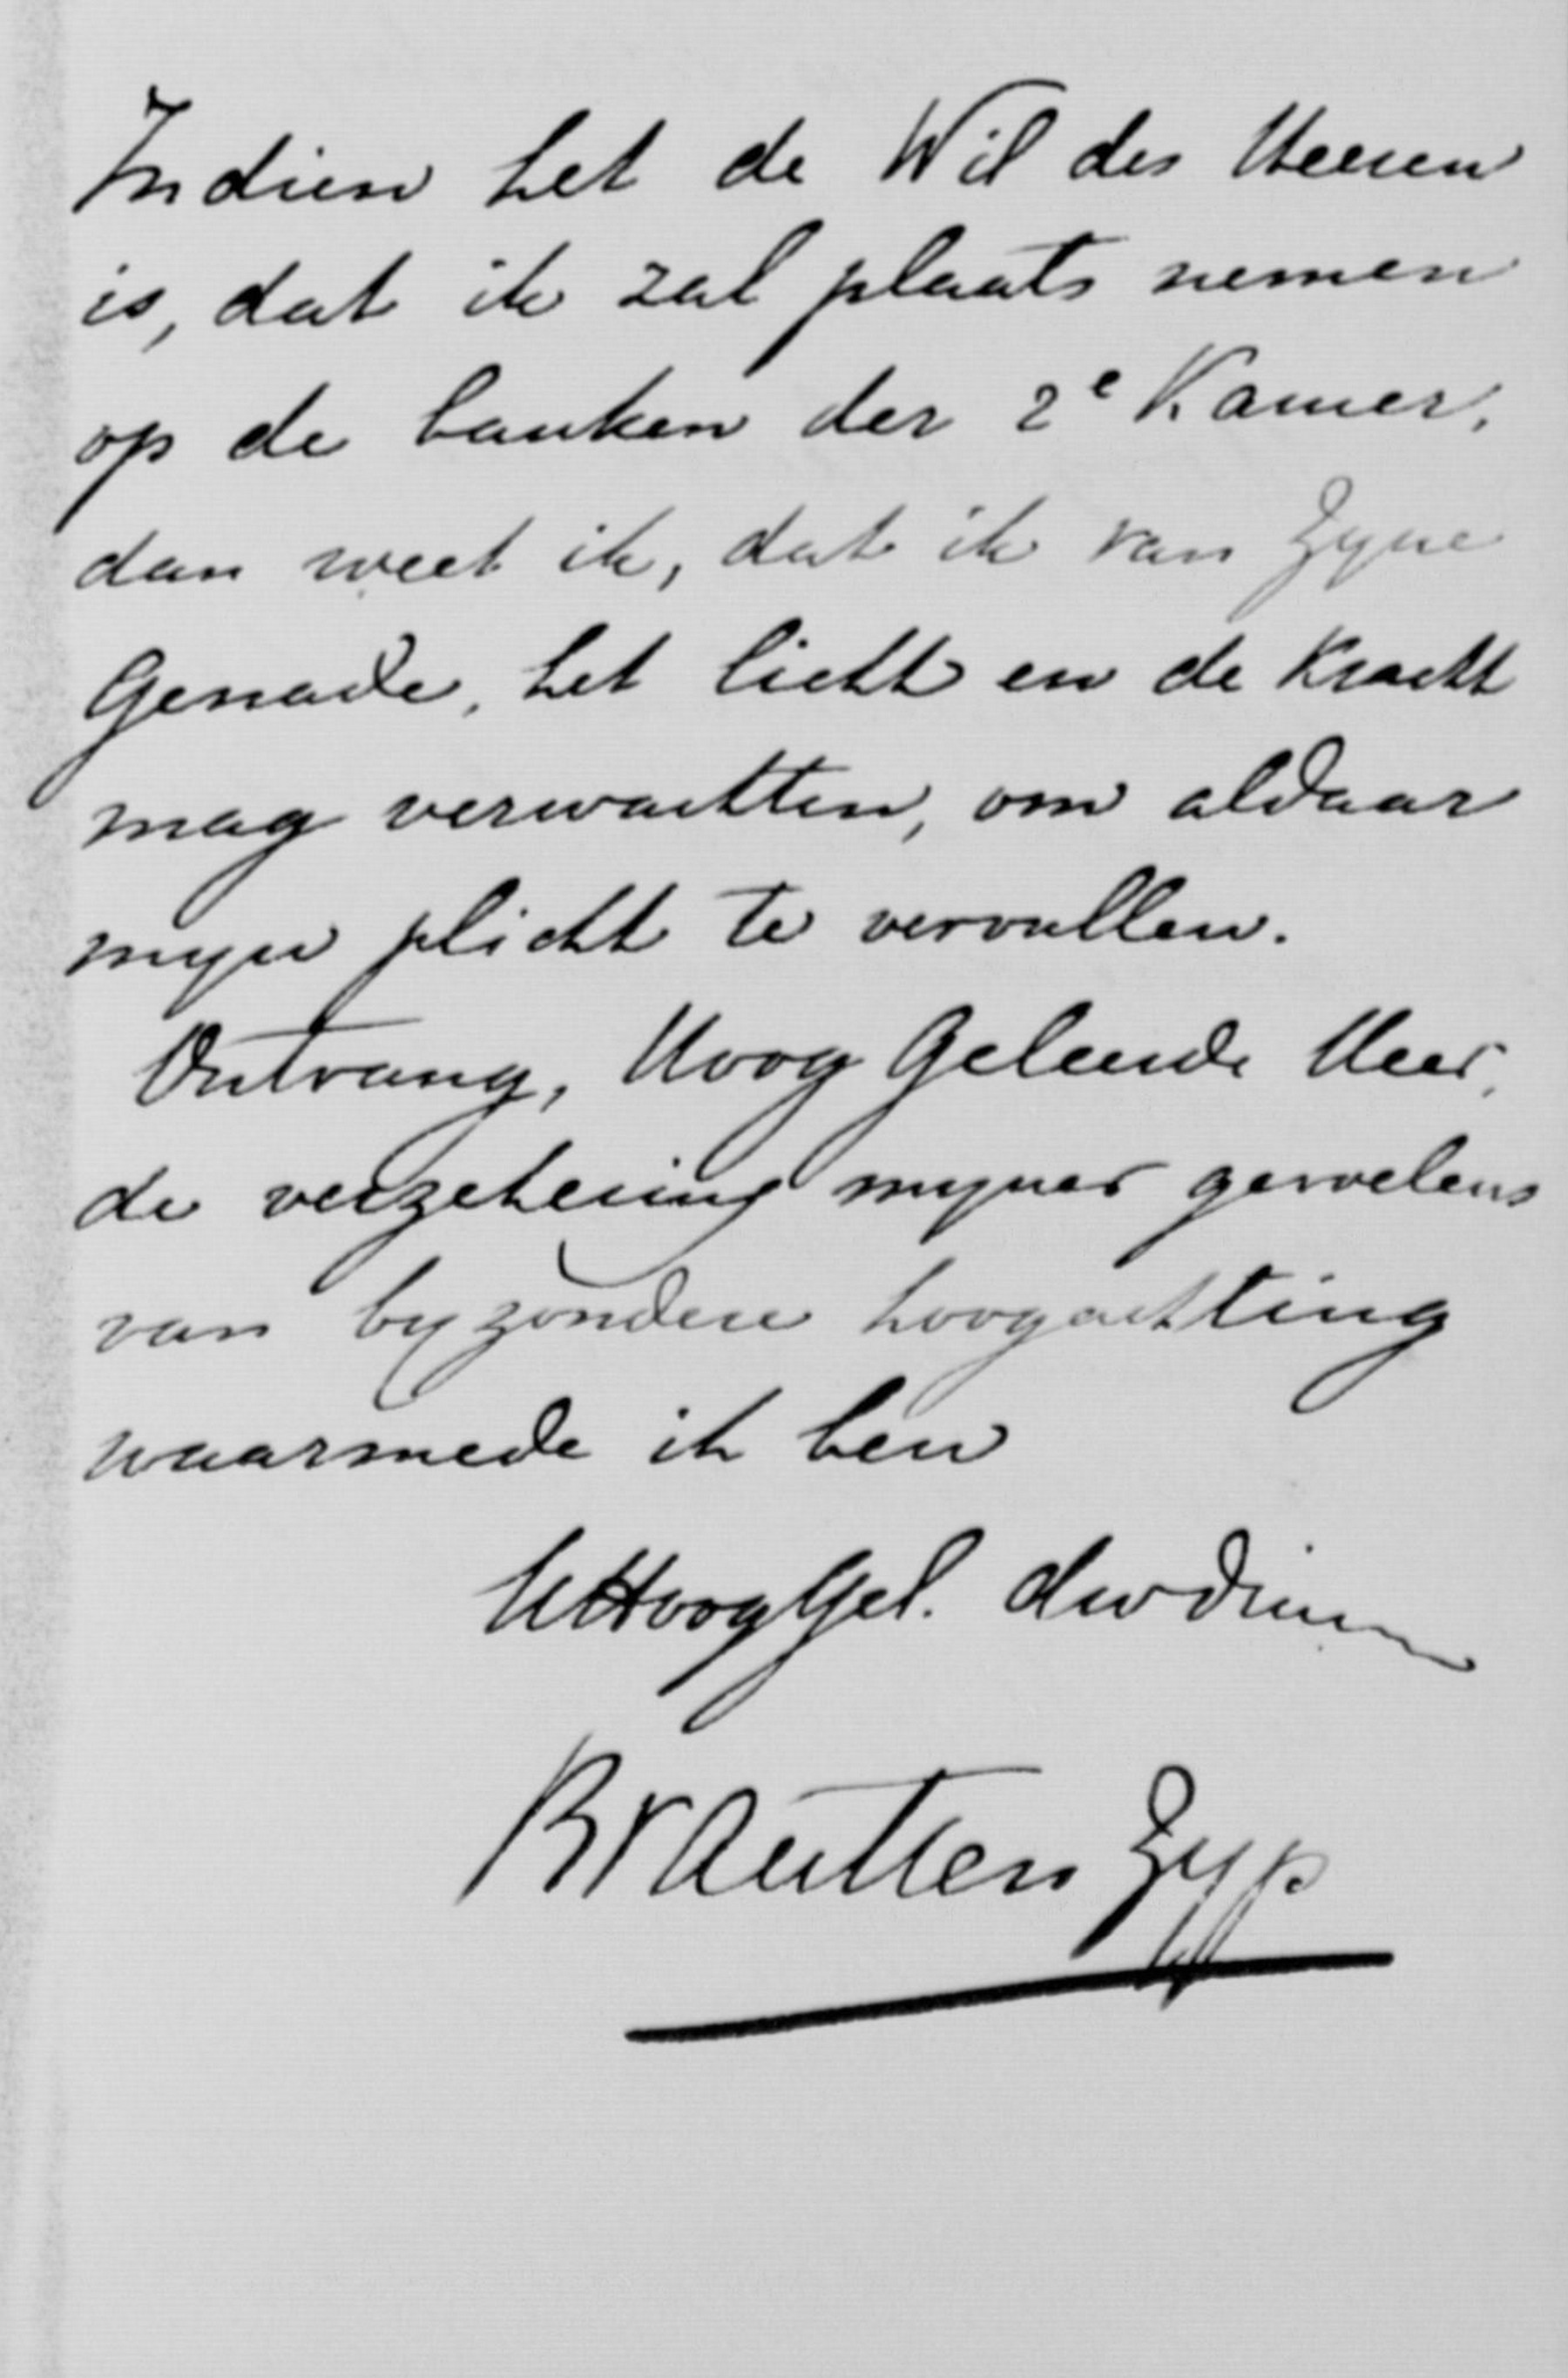 Indien het de Wil des Heeren
is, dat ik zal plaats nemen
op de banken der 2e Kamer,
dan weet ik, dat ik van Zyne
Genade, het licht en de kracht
mag verwachten, om aldaar
myn plicht te vervullen.
Ontvang, HoogGeleerde Heer,
de verzekering myner gevoelens
van byzondere hoogachting
waarmede ik ben
UHoogGel. dw dien
Brautten Zyp